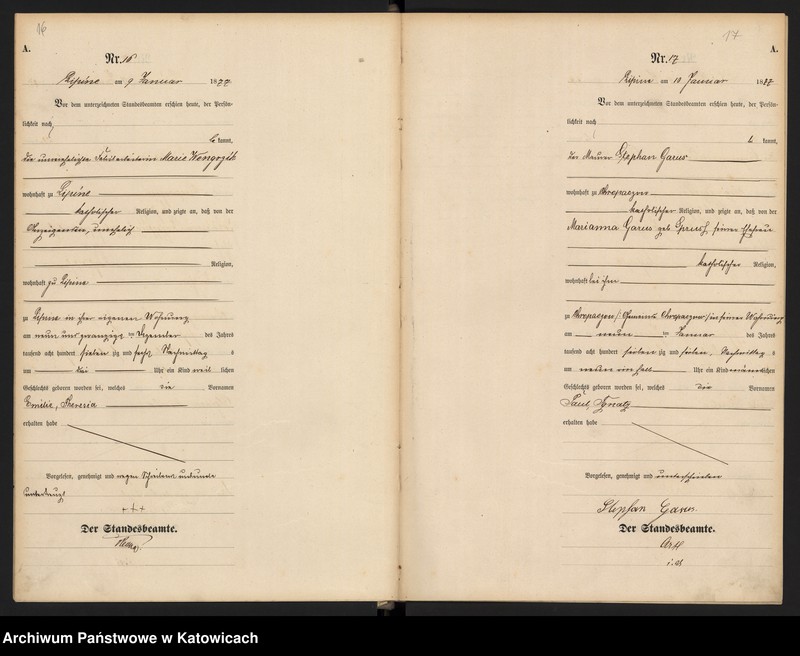 16
A.
Nr. 16
Lipine am 9 Januar 1877
Vor dem unterzeichneten Standesbeamten erschien heute, der Persön-
lichkeit nach
be kannt,
die unverehelichte Marie Wengorzik
wohnhaft zu Lipine
katholischer Religion, und zeigte an, daß von der
Anzeigenden, unehelich
Religion,
wohnhaft zu Lipine
zu Lipine in ihrer eigenen Wohnung
am neun und zwanzigs ten Dezember des Jahres
tausend acht hundert sieben zig und sechs Nachmittag s
um drei Uhr ein Kind weib lichen
Geschlechts geboren worden sei, welches die Vornamen
Emilie, Theresia
erhalten habe
Vorgelesen, genehmigt und wegen
+++
Der Standesbeamte.
17
A.
Nr. 17
Lipine am 10 Januar 1877
Vor dem unterzeichneten Standesbeamten erschien heute, der Persön-
lichkeit nach
b kannt,
der Maurer Stephan Garus
wohnhaft zu Chropaczow
katholischer Religion, und zeigte an, daß von der
Marianna Garus geb. seiner Ehefrau
katholischer Religion,
wohnhaft bei ihm
zu Chropaczow, Gemeinde Chropaczow in seiner Wohnung
am neun ten Januar des Jahres
tausend acht hundert sieben zig und sieben, Nachmittag s
um neun ein halb Uhr ein Kind männlichen
Geschlechts geboren worden sei, welches die Vornamen
Paul, Ignatz
erhalten habe
Vorgelesen, genehmigt und unterschrieben
Stephan Garus.
Der Standesbeamte.
Archiwum Państwowe w Katowicach